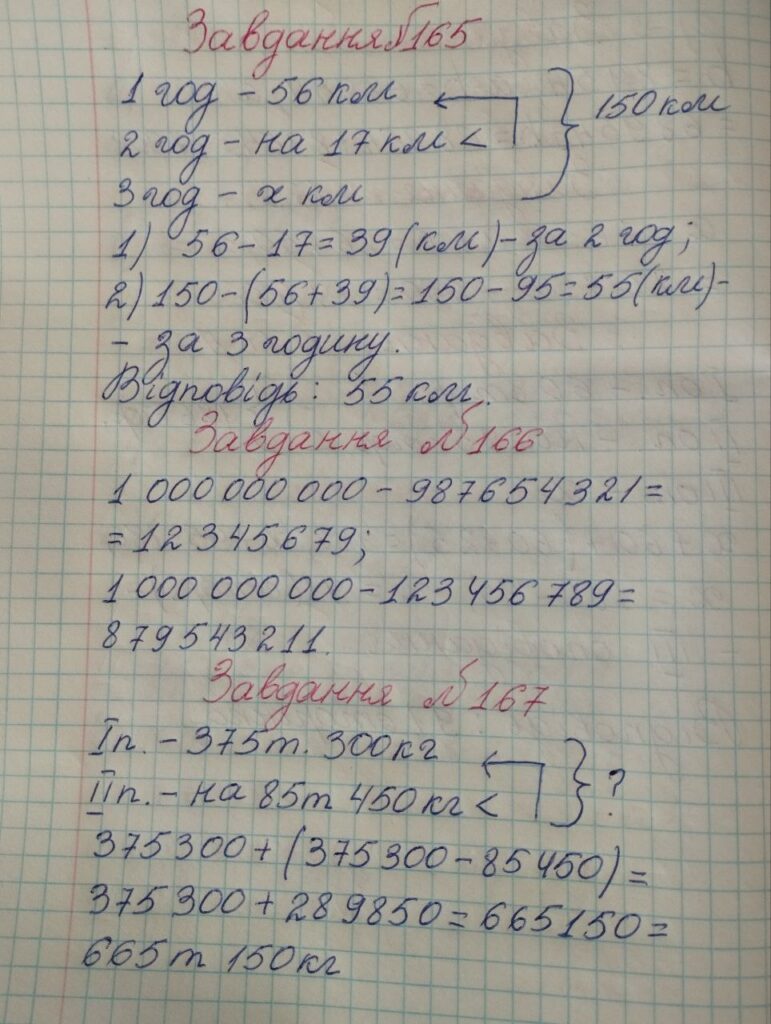 Завдання №165
1 год - 56 км
2 год - на 17 км <
3 год - х км
150 км
1) 56 - 17 = 39 (км) - за 2 год;
2) 150 - (56 + 39) = 150 - 95 = 55 (км) -
- за 3 годину.
Відповідь: 55 км.
Завдання №166
1 000 000 000 - 987654321 =
= 12 345679;
1 000 000 000 - 123 456 789 =
879543211.
Завдання №167
I п. - 375т. 300кг
II п. - на 85т 450кг <
?
375 300 + (375 300 - 85 450) =
375 300 + 289850 = 665150 =
665т 150кг